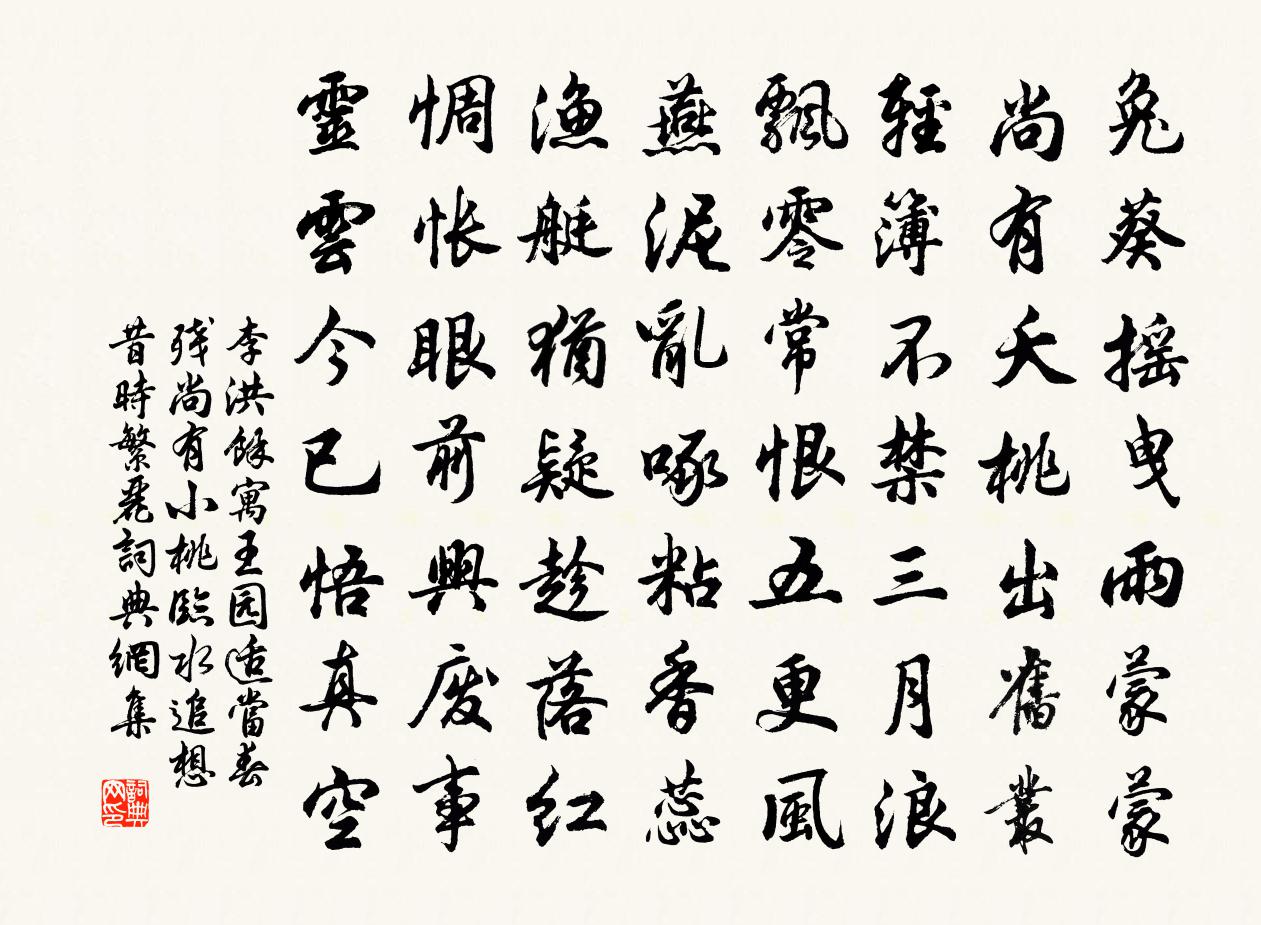 兔葵摇曳雨蒙蒙
尚有夭桃出舊叢
輕簿不禁三月浪
飄零常恨五更風
燕泥亂啄粘香蕊
漁艇猶疑趁落红
惆怅眼前興废事
靈雲今已悟真空
李洪餘寓王园适當春
残尚有小桃臨水追想
昔時繁麗詞典網集
詞典
网印